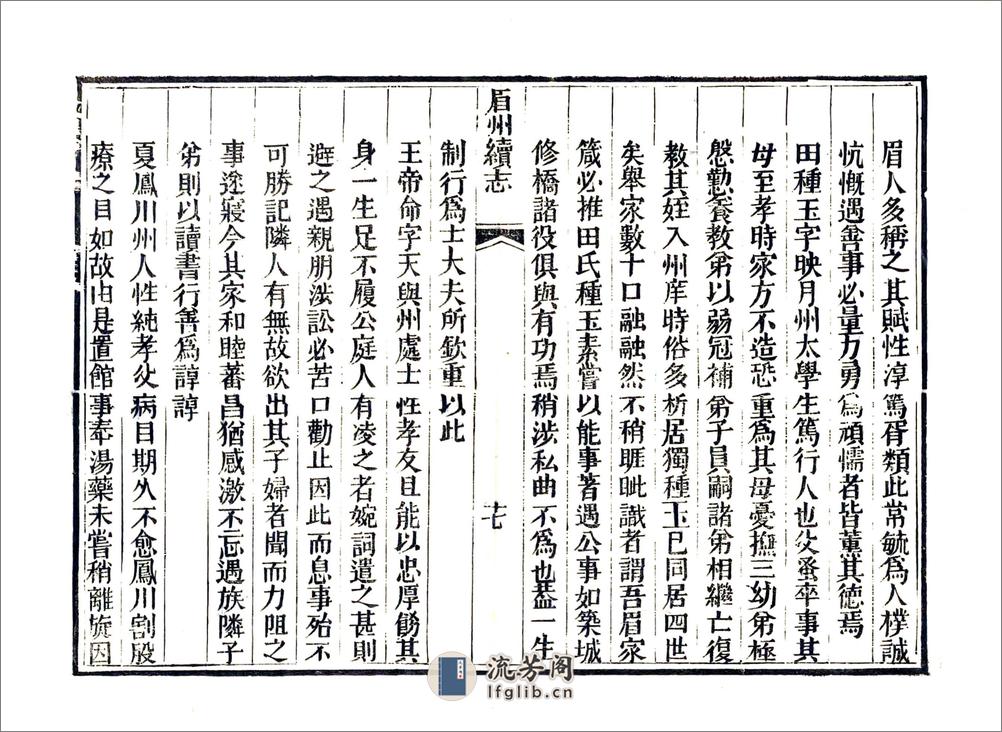 眉人多稱之其賦性淳篤胥類此常毓爲人樸誠
忼慨遇善事必量力勇爲頑懦者皆薫其德焉
田種玉字映月州太學生篤行人也父蚤卒事其
母至孝時家方不造恐重爲其母憂撫三幼弟極
慇懃養教弟以弱冠補弟子員嗣諸弟相繼亡復
教其姪入州庠時俗多析居獨種玉巳同居四世
矣舉家數十口融融然不稍睚眦識者謂吾眉家
箴必推田氏種玉素嘗以能事著遇公事如築城
修橋諸役俱與有功焉稍涉私曲不爲也葢一生
眉州續志
制行爲士大夫所欽重以此
王帝命字天與州處士性孝友且能以忠厚餝其
身一生足不履公庭人有凌之者婉詞遣之甚則
遊之遇親朋涉訟必苦口勸止因此而息事殆不
可勝記隣人有無故欲出其子婦者聞而力阻之
事遂寢今其家和睦蕃昌猶感激不忘遇族隣子
弟則以讀書行善爲諄諄
夏鳳川州人性純孝父病目期久不愈鳳川割股
療之目如故由是置館事奉湯藥未嘗稍離旋因
流芳阁
lfglib.cn